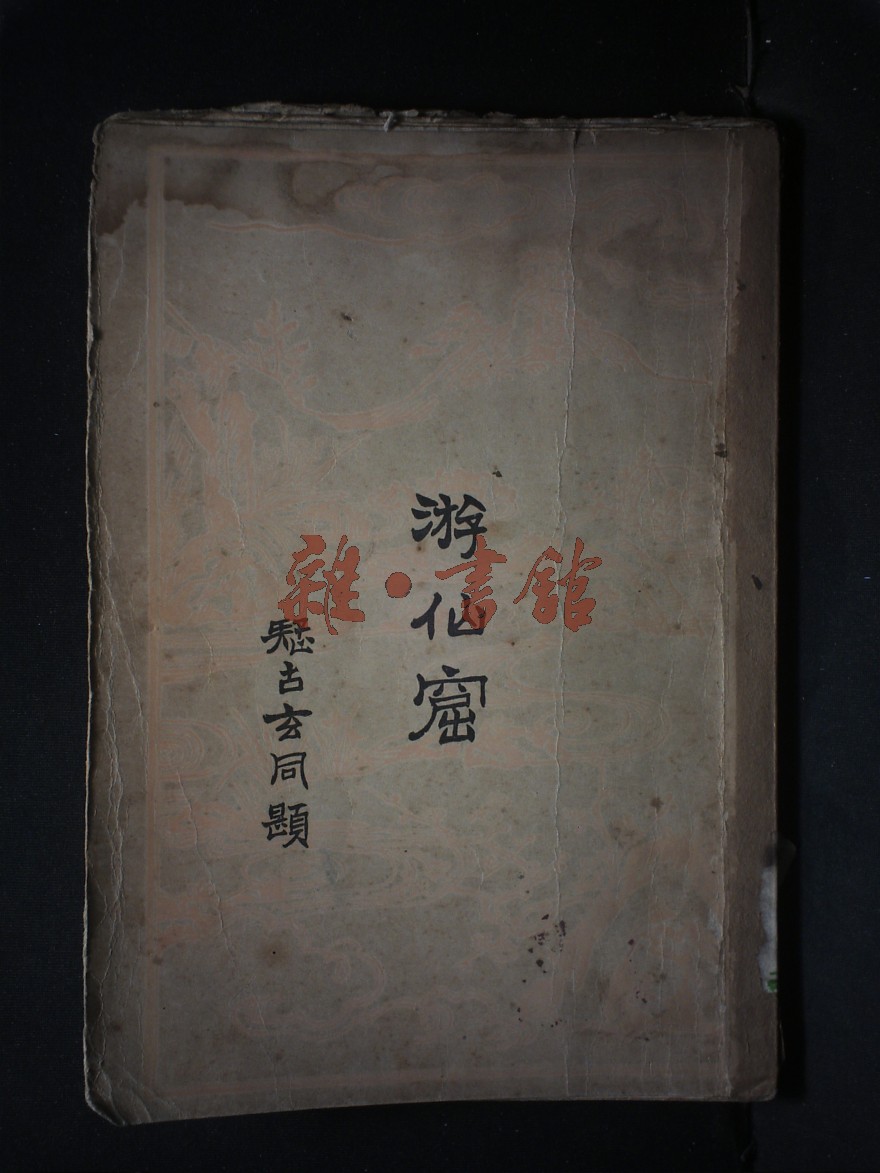 游仙窟
疑古玄同題
雜·書館